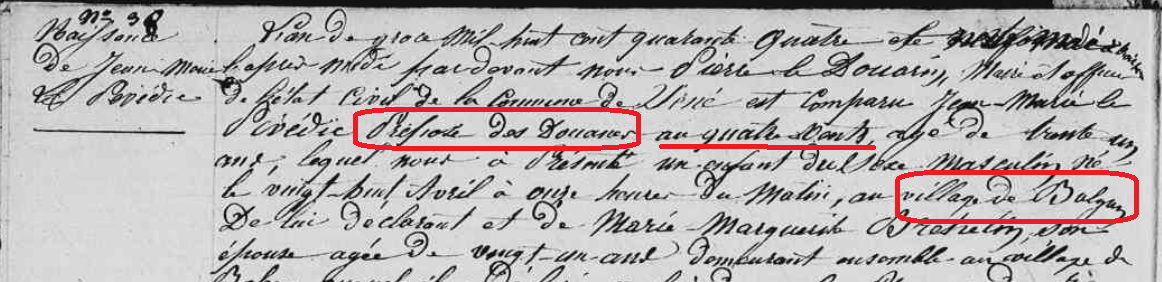 N° 38
Naissance
de Jean Marie
Le Pévédic
L'an de grace mil huit cent quarante quatre et le
l'apres midi pardevant nous Pierre le Douarin, Maire et officier
de l'état Civil de la Commune de est Comparu Jean Marie le
Pévédic Préposé des Douanes au quatre Vents, agé de trente un
ans, lequel nous à Présenté un enfant du Sexe masculin né
le vingt huit Avril à onze heures du Matin, au village de
De lui declarant et de Marie Marguerite son
épouse agée de vingt-un-ans demeurant ensemble au village de